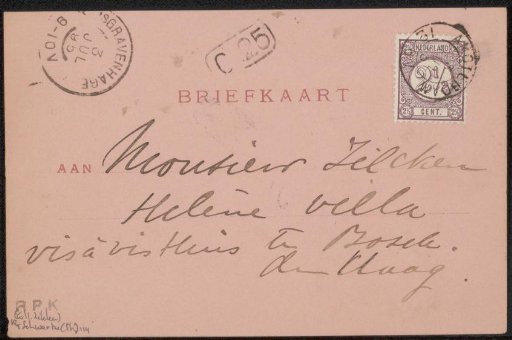 'SGRAVENHAGE
JUL
9-10V
C 25
NEDERLAND
2½
CENT.
AMSTERDAM
BRIEFKAART
AAN Monsieur Zilcken
Helène villa
vis à vis Huis ten Bosch.
den Haag.
R P K
(coll. Zilcken)